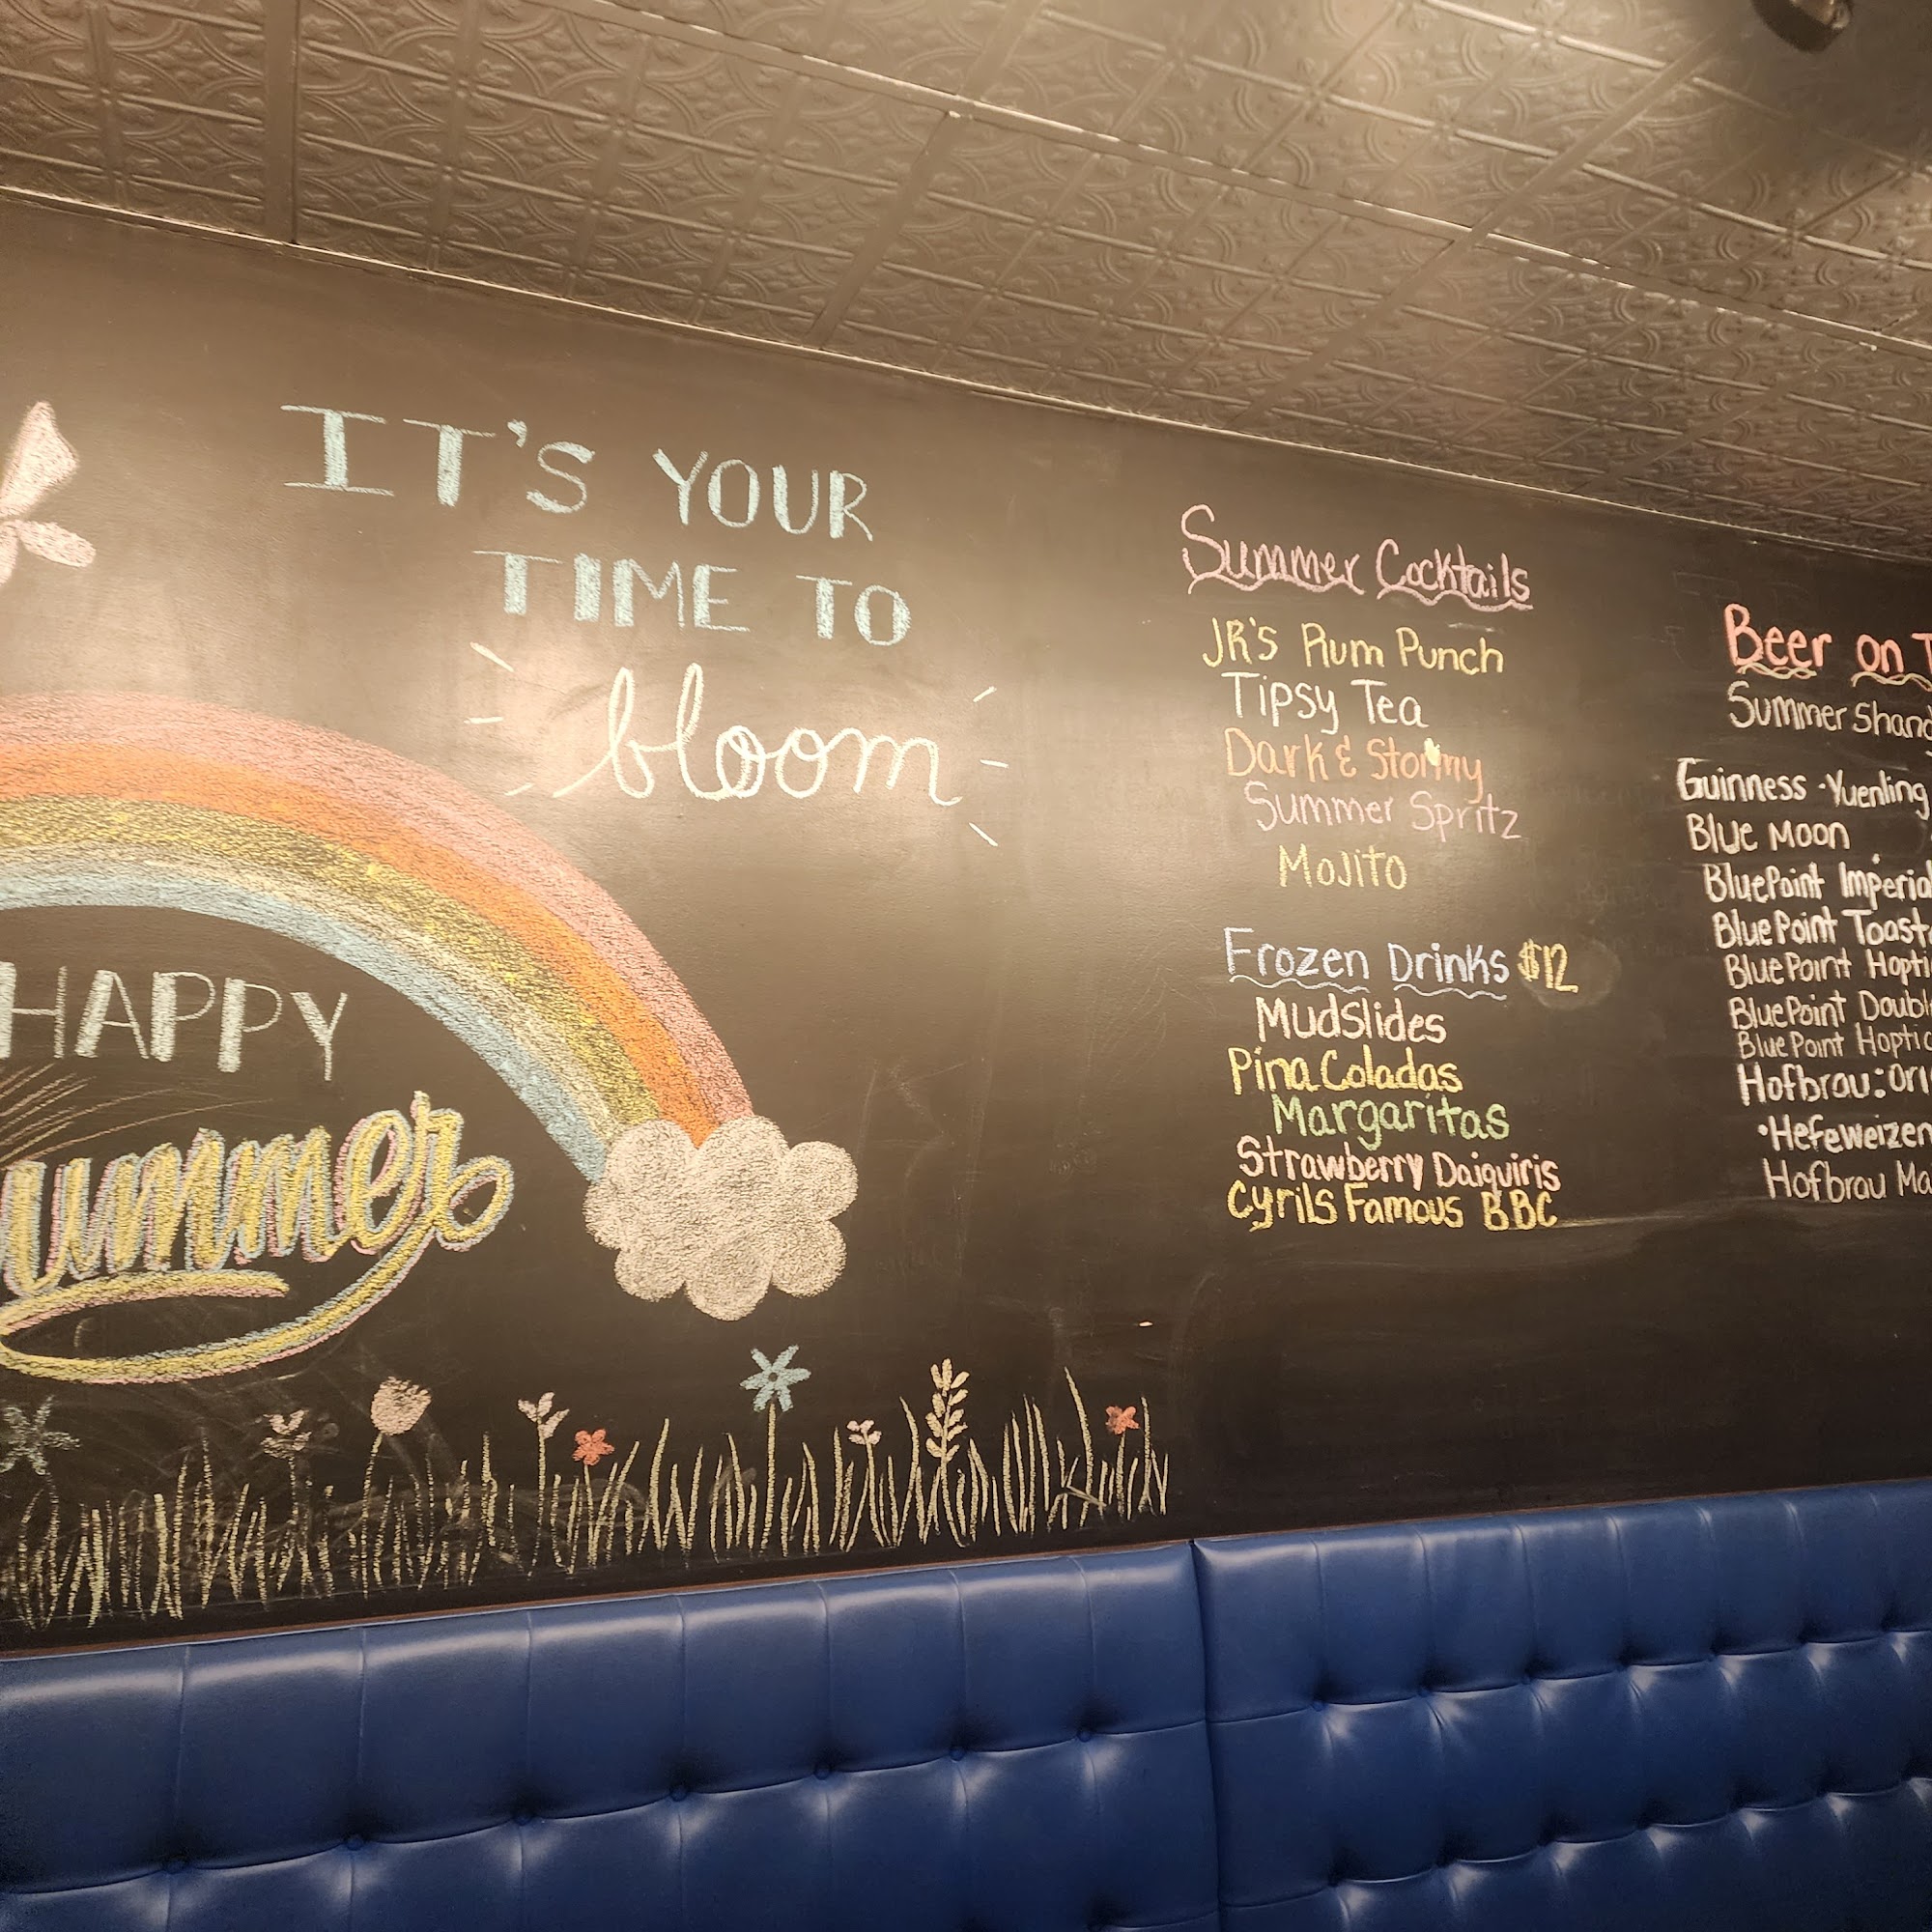 IT'S YOUR
TIME TO
bloom
HAPPY
ummer
Summer Cocktails
JR's Rum Punch
Tipsy Tea
Dark & Stormy
Summer Spritz
Mojito
Frozen Drinks $12
Mudslides
Pina Coladas
Margaritas
Strawberry Daiquiris
Cyrils Famous BBC
Beer on T
Summer Shand
Guinness · Yuenling
Blue Moon
BluePoint Imperial
BluePoint Toast
BluePoint Hopti
BluePoint Doubl
BluePoint Hoptic
Hofbrau: Ori
• Hefeweizen
Hofbrau Ma